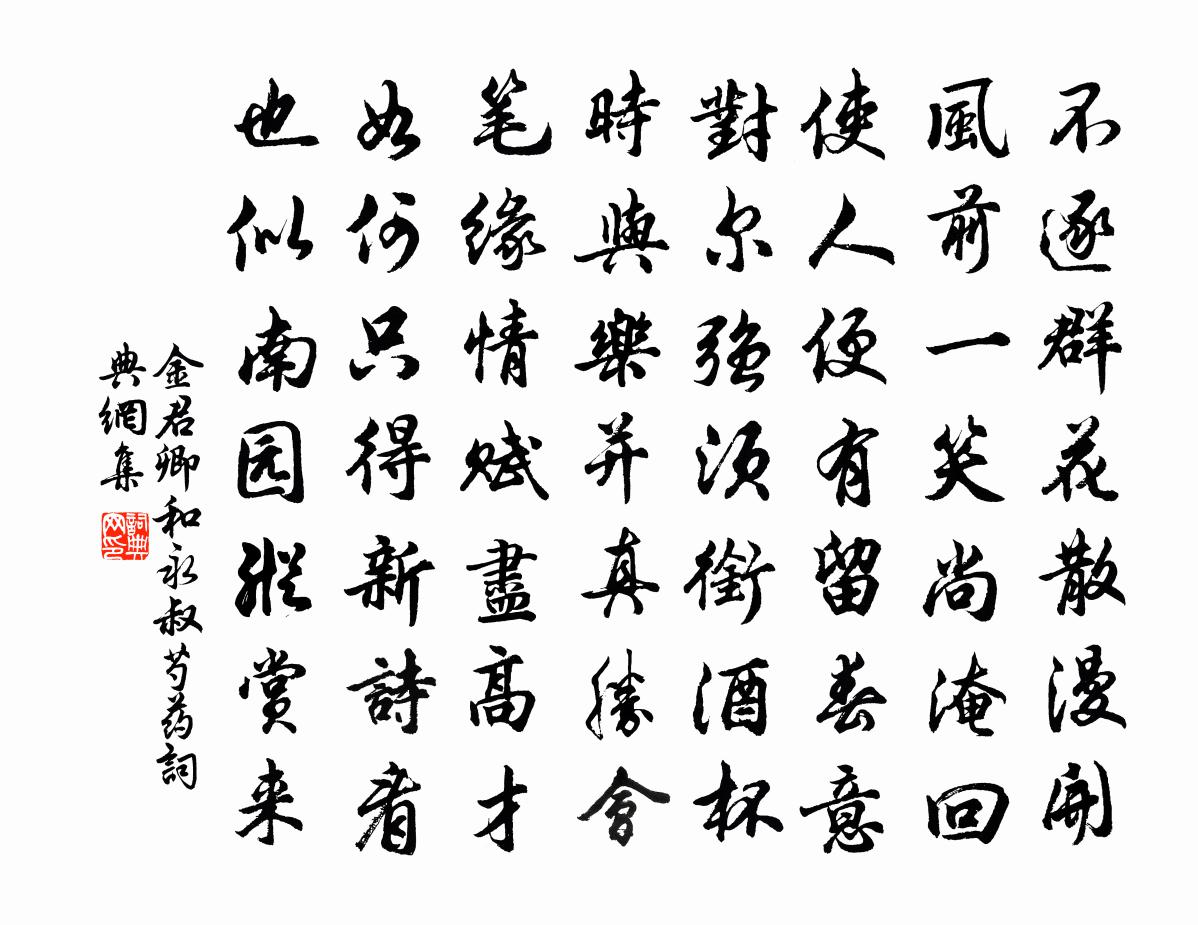 不逐群花散漫開
風前一笑尚淹回
使人便有留春意
對尔強須銜酒杯
時與樂并真勝會
笔緣情赋盡高才
如何只得新詩看
也似南园縱赏来
金君卿和永叔芍药詞
典網集
詞典
网印